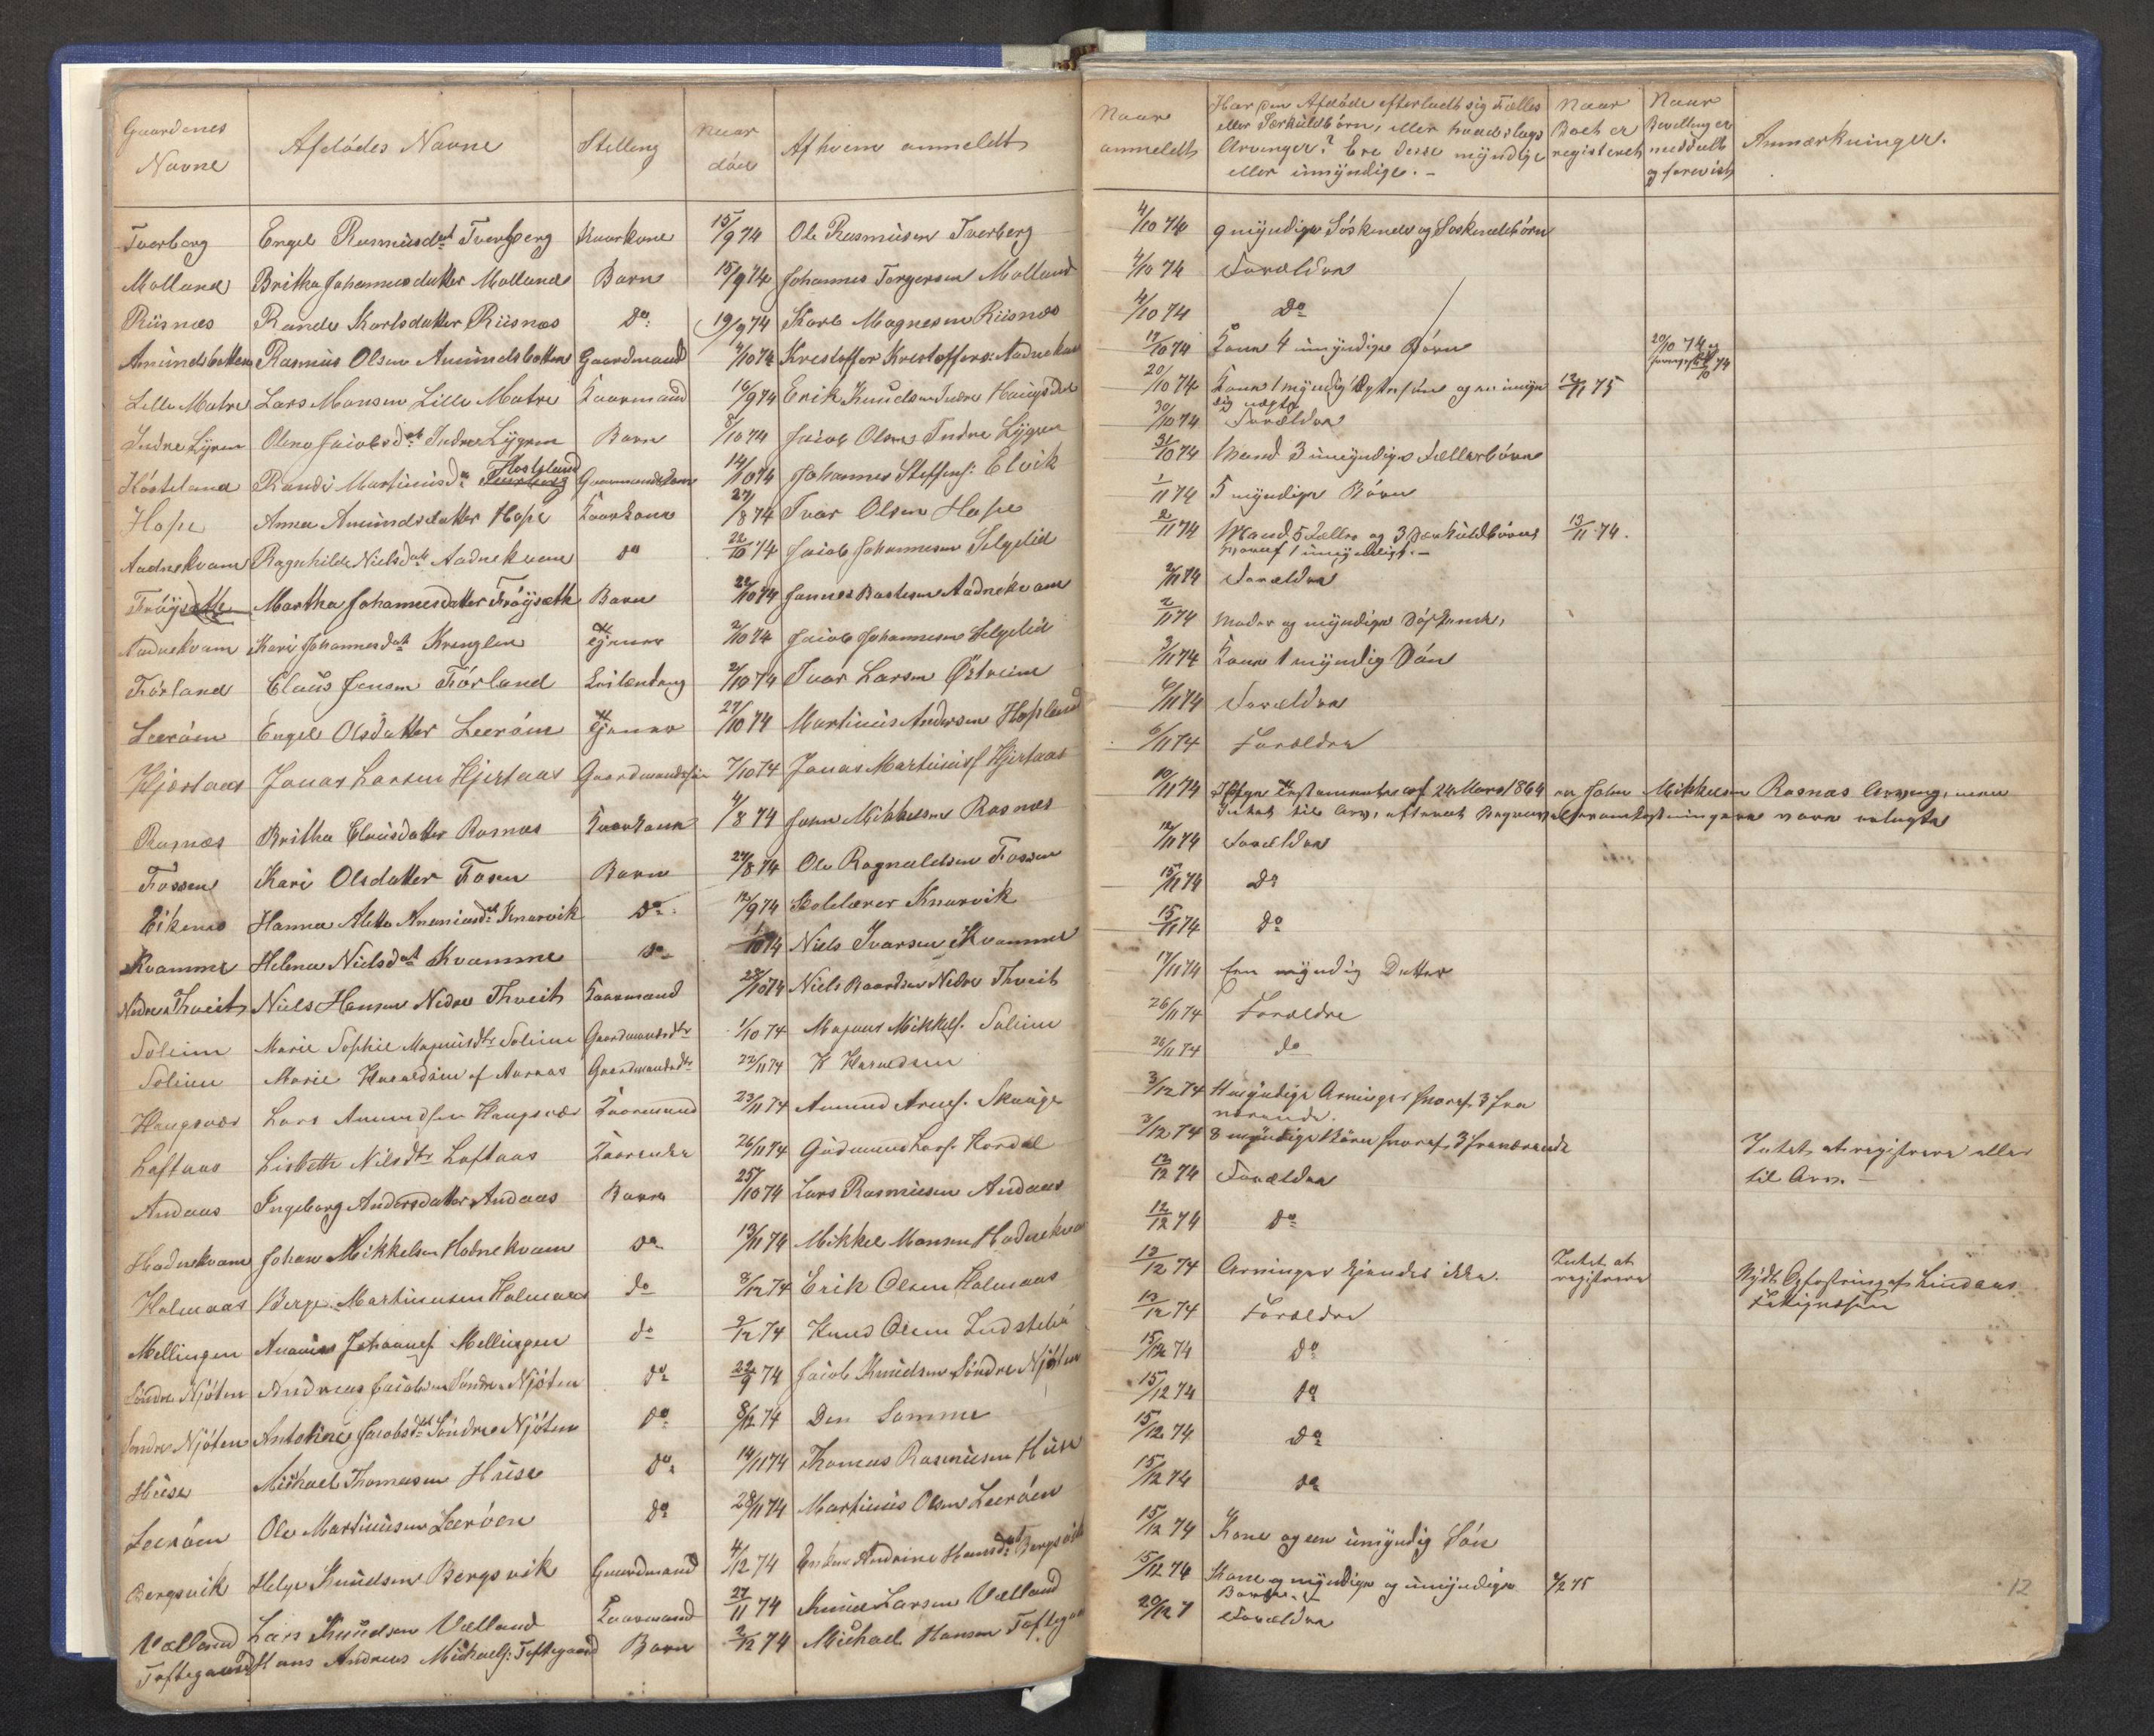 Gaardenes Navne | Afdødes Navne | Stilling | Naar død | Af hvem anmeldt
Tverberg | Engel Rasmusdat Tverberg | Kaarkone | 15/9 74 | Ole Rasmusen Tverberg
Molland | Britha Johannesdatter Molland | Barn | 15/9 74 | Johannes Torgersen Molland
Riisnæs | Rande Karlsdatter Riisnæs | Do: | 19/9 74 | Karl Magnesen Riisnæs
Amundsbotten | Rasmus Olsen Amundsbotten | Gaardmand | 4/10 74 | Krestoffer Krestoffers: Aadnekvam
Lille Matre | Lars Monsen Lille Matre | Kaarmand | 16/9 74 | Erik Knudsen Indre Haugsdal
Indre Lygren | Olena Jacobsdat Indre Lygren | Barn | 8/10 74 | Jacob Olsen Indre Lygren
Flosteland
Randi Martinusdr | Gaardmandskone | 14/10 74 | Johannes Steffens: Elvik
Hope | Anna Amundsdatter Hope | Kaarkone | 27/8 74 | Ivar Olsen Hope
Aadnekvam | Ragnhilde Nielsdat Aadnekvam | do | 22/10 74 | Jacob Johannesen Selgelid
Frøysæth | Martha Johannesdatter Frøysæth | Barn | 22/10 74 | Bastesen Aadnekvam
Aadnekvam | Kari Johannesdat Kringlen | 2/10 74 | Jacob Johannesen Selgelid
Førland | Claus Jensen Førland | 2/10 74 | Ivar Larsen Østreim
Leerøen | Engel Olsdatter Leerøen | 27/10 74 | Martinus Andersen Hopland
Hjertaas | Jonas Larsen Hjertaas | Gaardmandssøn | 7/10 74 | Jonas Martinusf Hjertaas
Rasnæs | Britha Clausdatter Rasnæs | Kaarkone | 4/8 74 | John Mikkelsen Rasnæs
Fossen | Kari Olsdatter Fosen | Barn | 27/8 74 | Ole Ragnaldsen Fossen
Eikenæs | Hanna Aletta Ananiasdat Knarvik | Do: | 12/9 74 | Skolelærer Knarvik
Kvamme | Helena Nielsdat Kvamme | do | Niels Ivarsen Kvamme
Nedre Thveit | Niels Hansen Nedre Thveit | Kaarmand | 28/10 74 | Niels Baardsen Nedre Thveit
Soleim | Marie Sophie Magnusdtr Soleim | Gaardmandsdtr | 1/10 74 | Magnus Mikkels. Soleim
Soleim | Marie Haraldsen af Aaraas | Gaardmandsdtr | 22/11 74 | K Haraldsen
Haugsvær | Lars Amundsen Haugsvær | Kaarmand | 23/11 74 | Amund Arnes. Skauge
Loftaas | Lisbeth Nilsdtr Loftaas | Kaarenke | 26/11 74 | Gudmund Lars. Kordal
Andaas | Ingeborg Andersdatter Andaas | Barn | 25/10 74 | Lars Rasmusen Andaas
Hodnekvam | Johan Mikkelsen Hodnekvam | Do | 13/11 74 | Mikkel Monsen Hodnekvam
Holmaas | Berge Martinusen Holmaas | do | 8/12 74 | Erik Olsen Holmaas
Mellingen | Ananias Johannes. Mellingen | do | 9/12 74 | Knud Olsen Indstebø
Søndre Njøten | Andreas Jacobsen Søndre Njøten | Do | 22/9 74 | Jacob Knudsen Søndre Njøten
Søndre Njøten | Antonine Jacobsdat Søndre Njøten | Do | 8/12 74 | Den Samme
Huse | Michael Thomasen Huse | Do | 14/11 74 | Thomas Rasmusen Huse
Leerøen | Ole Martinusen Leerøen | Do | 28/11 74 | Martinus Olsen Leerøen
Bergsvik | Helge Knudsen Bergsvik | Gaardmand | 4/12 74 | Enken Andrine Hansdat Bergsvik
Vælland | Lars Knudsen Vælland | Kaarmand | 27/11 74 | Knud Larsen Vælland
Toftegaard | Hans Andreas Michaels: Toftegaard | Barn | 2/12 74 | Michael Hansen Toftegaard
Naar anmeldt | Har den Afdøde efterladt sig Fælles eller Særkuldbørn, eller hvadslags Arvinger? Ere disse myndige eller umyndige. - | Naar Boet er registeret | Naar Bevilling er meddeelt og forevist | Anmærkninger.
4/10 74 | 9 myndige Søskende og Søskendebørn
4/10 74 | Forældre
4/10 74 | Do
17/10 74 | Kone 4 umyndige Børn | 20/10 74
20/10 74 | Kone 1 myndig og en umyndig | 12/1 75
30/10 74 | Forældre
31/10 74 | Mand 3 umyndige Fællesbørn
1/11 74 | 5 myndige Børn
2/11 74 | Mand 5 Fælles og 3 Særkuldbørn | 13/11 74.
hvoraf 1 umyndigt. -
2/11 74 | Forældre
2/11 74 | Moder og myndige Søskende,
3/11 74 | Kone 1 myndig Søn
6/11 74 | Forældre
6/11 74 | Forældre
10/11 74 | Ifølge Testamente af 24 Mars 1864 er John Mikkelsen Rasnæs Arving, men
Intet til Arv, efterat vare
12/11 74 | Forældre
15/11 74 | Do
15/11 74 | Do
17/11 74 | Een myndig Datter
26/11 74 | Forældre
26/11 74 | do
3/12 74 | Myndige Arvinger hvoraf 3 fra
værende.
3/12 74 | 8 myndige Børn hvoraf 3 fraværende | Intet at registrere eller
12/12 74 | Forældre | til Arv. -
12/12 74 | Do
12/12 74 | Arvinger kjendes ikke. | Intet at registrere | Nydt Opfostring af Lindaas
12/12 74 | Forældre
15/12 74 | Do
15/12 74 | Do
15/12 74 | Do
15/12 74 | Do
15/12 74 | Kone og een umyndig Søn
15/12 74 | Kone og myndige og umyndige | 4/2 75
Børn
20/12 7 | Forældre
12